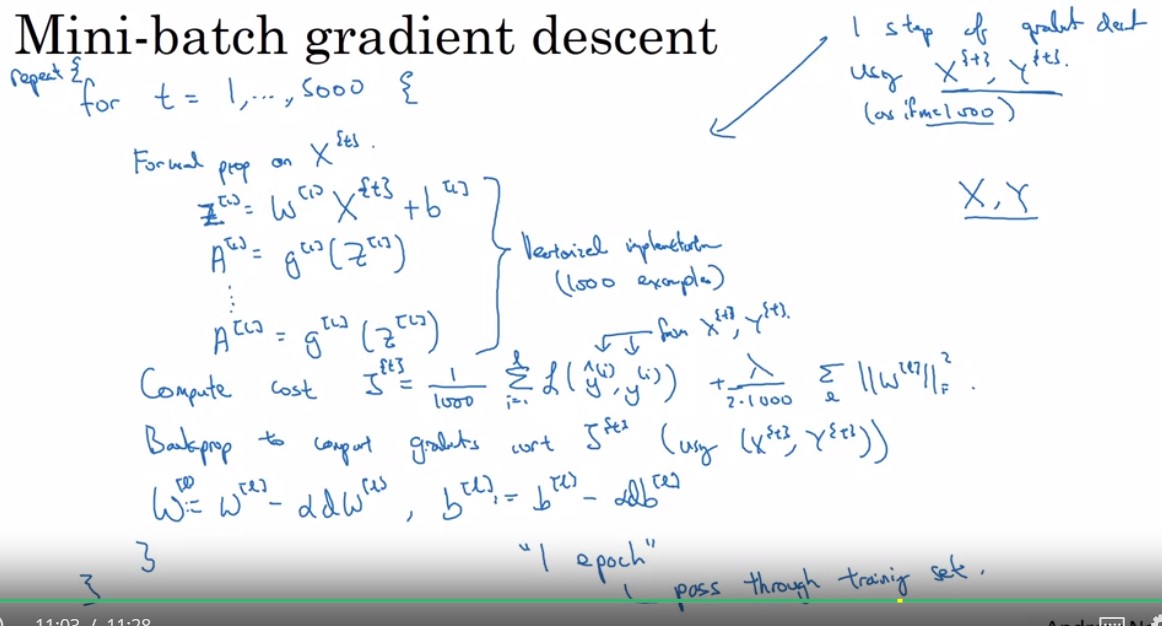 Mini-batch gradient descent
repeat {
for t = 1,..., 5000 {
1 step of gradient descent
using X^{t}, Y^{t}.
(as if m=1000)
Forward prop on X^{t}.
Z^[1] = W^[1] X^{t} + b^[1]
A^[1] = g^[1](Z^[1])
⋮
A^[L] = g^[L](Z^[L])
Vectorized implementation
(1000 examples)
X, Y
from X^{t}, Y^{t}.
Compute cost J^{t} = 1/1000 Σ_{i=1}^{l} L(ŷ^(i), y^(i)) + λ/(2·1000) Σ_l ||W^[l]||_F^2.
Backprop to compute gradients wrt J^{t} (using (X^{t}, Y^{t}))
W^[l] := W^[l] - αdW^[l], b^[l] := b^[l] - αdb^[l]
}
}
"1 epoch"
pass through training set.
11:03 / 11:28